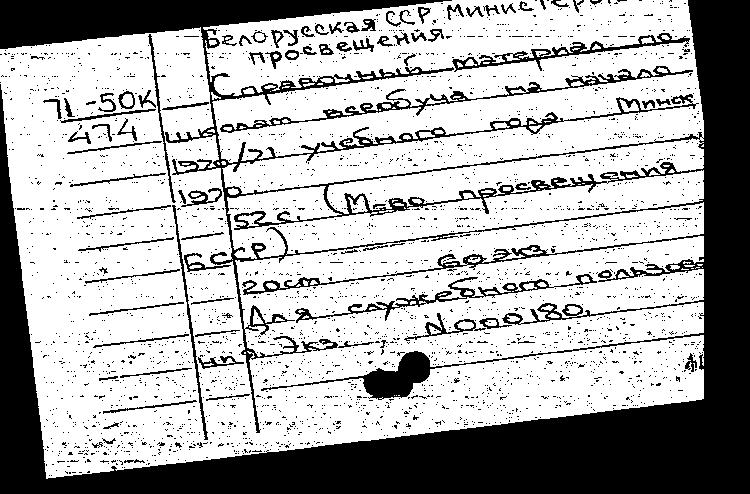 Белорусская ССР. Министерство
просвещения.
71-50К Справочный материал по
474 школам всеобуча на начало
1970/71 учебного года. Минск
1970.
52 с. (М-во просвещения
БССР).
20см. 60 экз.
Для служебного пользова
ния. Экз. N000180.